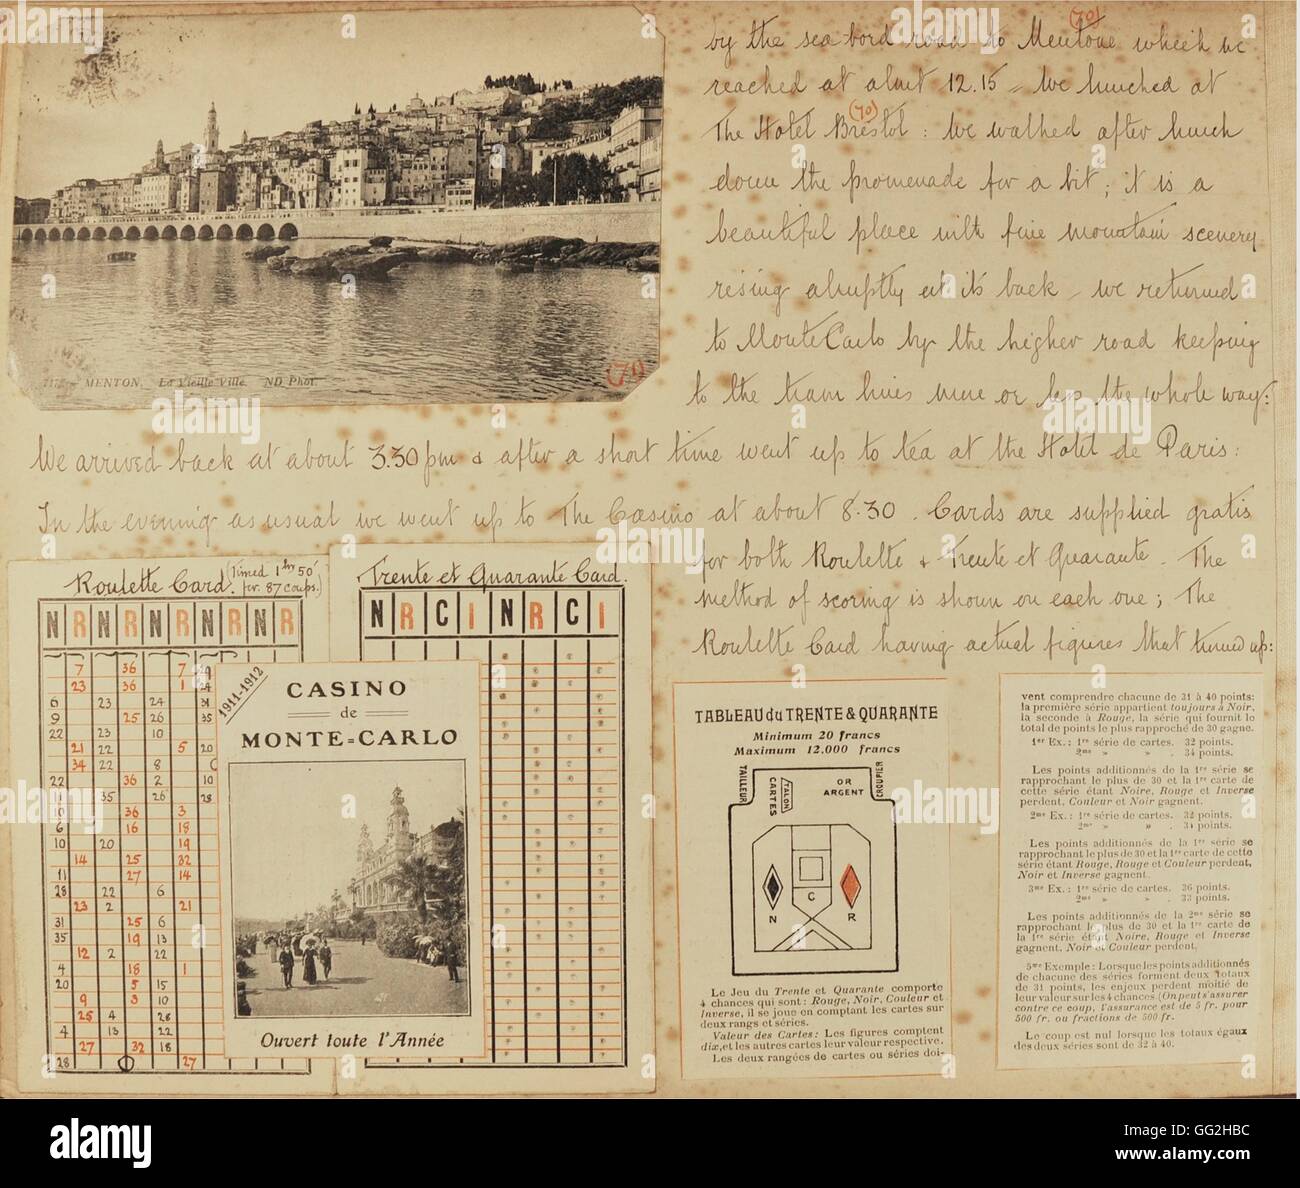 (70)
by the sea-bord road to Mentone which we
reached at about 12.15 = We lunched at
(70)
The Hotel Bristol: We walked after lunch
down the promenade for a bit; it is a
beautiful place with fine mountain scenery
rising abruptly at it's back - we returned
to Monte Carlo by the higher road keeping
to the tram lines more or less the whole way:
MENTON. La Vieille Ville. ND Phot.
(71)
We arrived back at about 3.30 pm & after a short time went up to tea at the Hotel de Paris:
In the evening as usual we went up to The Casino at about 8.30. Cards are supplied gratis
for both Roulette & Trente et Quarante. The
method of scoring is shown on each one; The
Roulette Card having actual figures that turned up:
Roulette Card. (Timed 1 hr 50' for 87 coups.)
N R N R N R N R N R
7 36 7 20
23 36 1 24
6 23 24 31
9 25 26 35
22 23 10
21 22 5 20
34 22 8
22 36 2 10
11 35 26 28
10 36 3
6 16 18
10 20 19
14 25 32
11 27 14
28 22 6
23 2 21
31 25 6
35 19 13
12 2 22
4 18 1
20 5 15
9 3 10
25 4 26
4 13 22
27 32 18
28 0 27
Trente et Quarante Card.
N R C I N R C I
1911-1912
CASINO
de
MONTE=CARLO
Ouvert toute l'Année
TABLEAU du TRENTE & QUARANTE
Minimum 20 francs
Maximum 12.000 francs
TAILLEUR
CARTES
TALON
OR
ARGENT
CROUPIER
C
N
R
Le Jeu du Trente et Quarante comporte
4 chances qui sont: Rouge, Noir, Couleur et
Inverse, il se joue en comptant les cartes sur
deux rangs et séries.
Valeur des Cartes: Les figures comptent
dix, et les autres cartes leur valeur respective.
Les deux rangées de cartes ou séries doi-
vent comprendre chacune de 31 à 40 points:
la première série appartient toujours à Noir,
la seconde à Rouge, la série qui fournit le
total de points le plus rapproché de 30 gagne.
1er Ex.: 1re série de cartes. 32 points.
2me » » . 34 points.
Les points additionnés de la 1re série se
rapprochant le plus de 30 et la 1re carte de
cette série étant Noire, Rouge et Inverse
perdent, Couleur et Noir gagnent.
2me Ex.: 1re série de cartes. 32 points.
2me » » . 31 points.
Les points additionnés de la 1re série se
rapprochant le plus de 30 et la 1re carte de cette
série étant Rouge, Rouge et Couleur perdent,
Noir et Inverse gagnent.
3me Ex.: 1re série de cartes. 36 points.
2me » » . 33 points.
Les points additionnés de la 2me série se
rapprochant le plus de 30 et la 1re carte de
la 1re série étant Noire, Rouge et Inverse
gagnent, Noir et Couleur perdent.
5me Exemple: Lorsque les points additionnés
de chacune des séries forment deux totaux
de 31 points, les enjeux perdent moitié de
leur valeur sur les 4 chances (On peut s'assurer
contre ce coup, l'assurance est de 5 fr. pour
500 fr. ou fractions de 500 fr.
Le coup est nul lorsque les totaux égaux
des deux séries sont de 32 à 40.
alamy
Image ID: GG2HBC
www.alamy.com